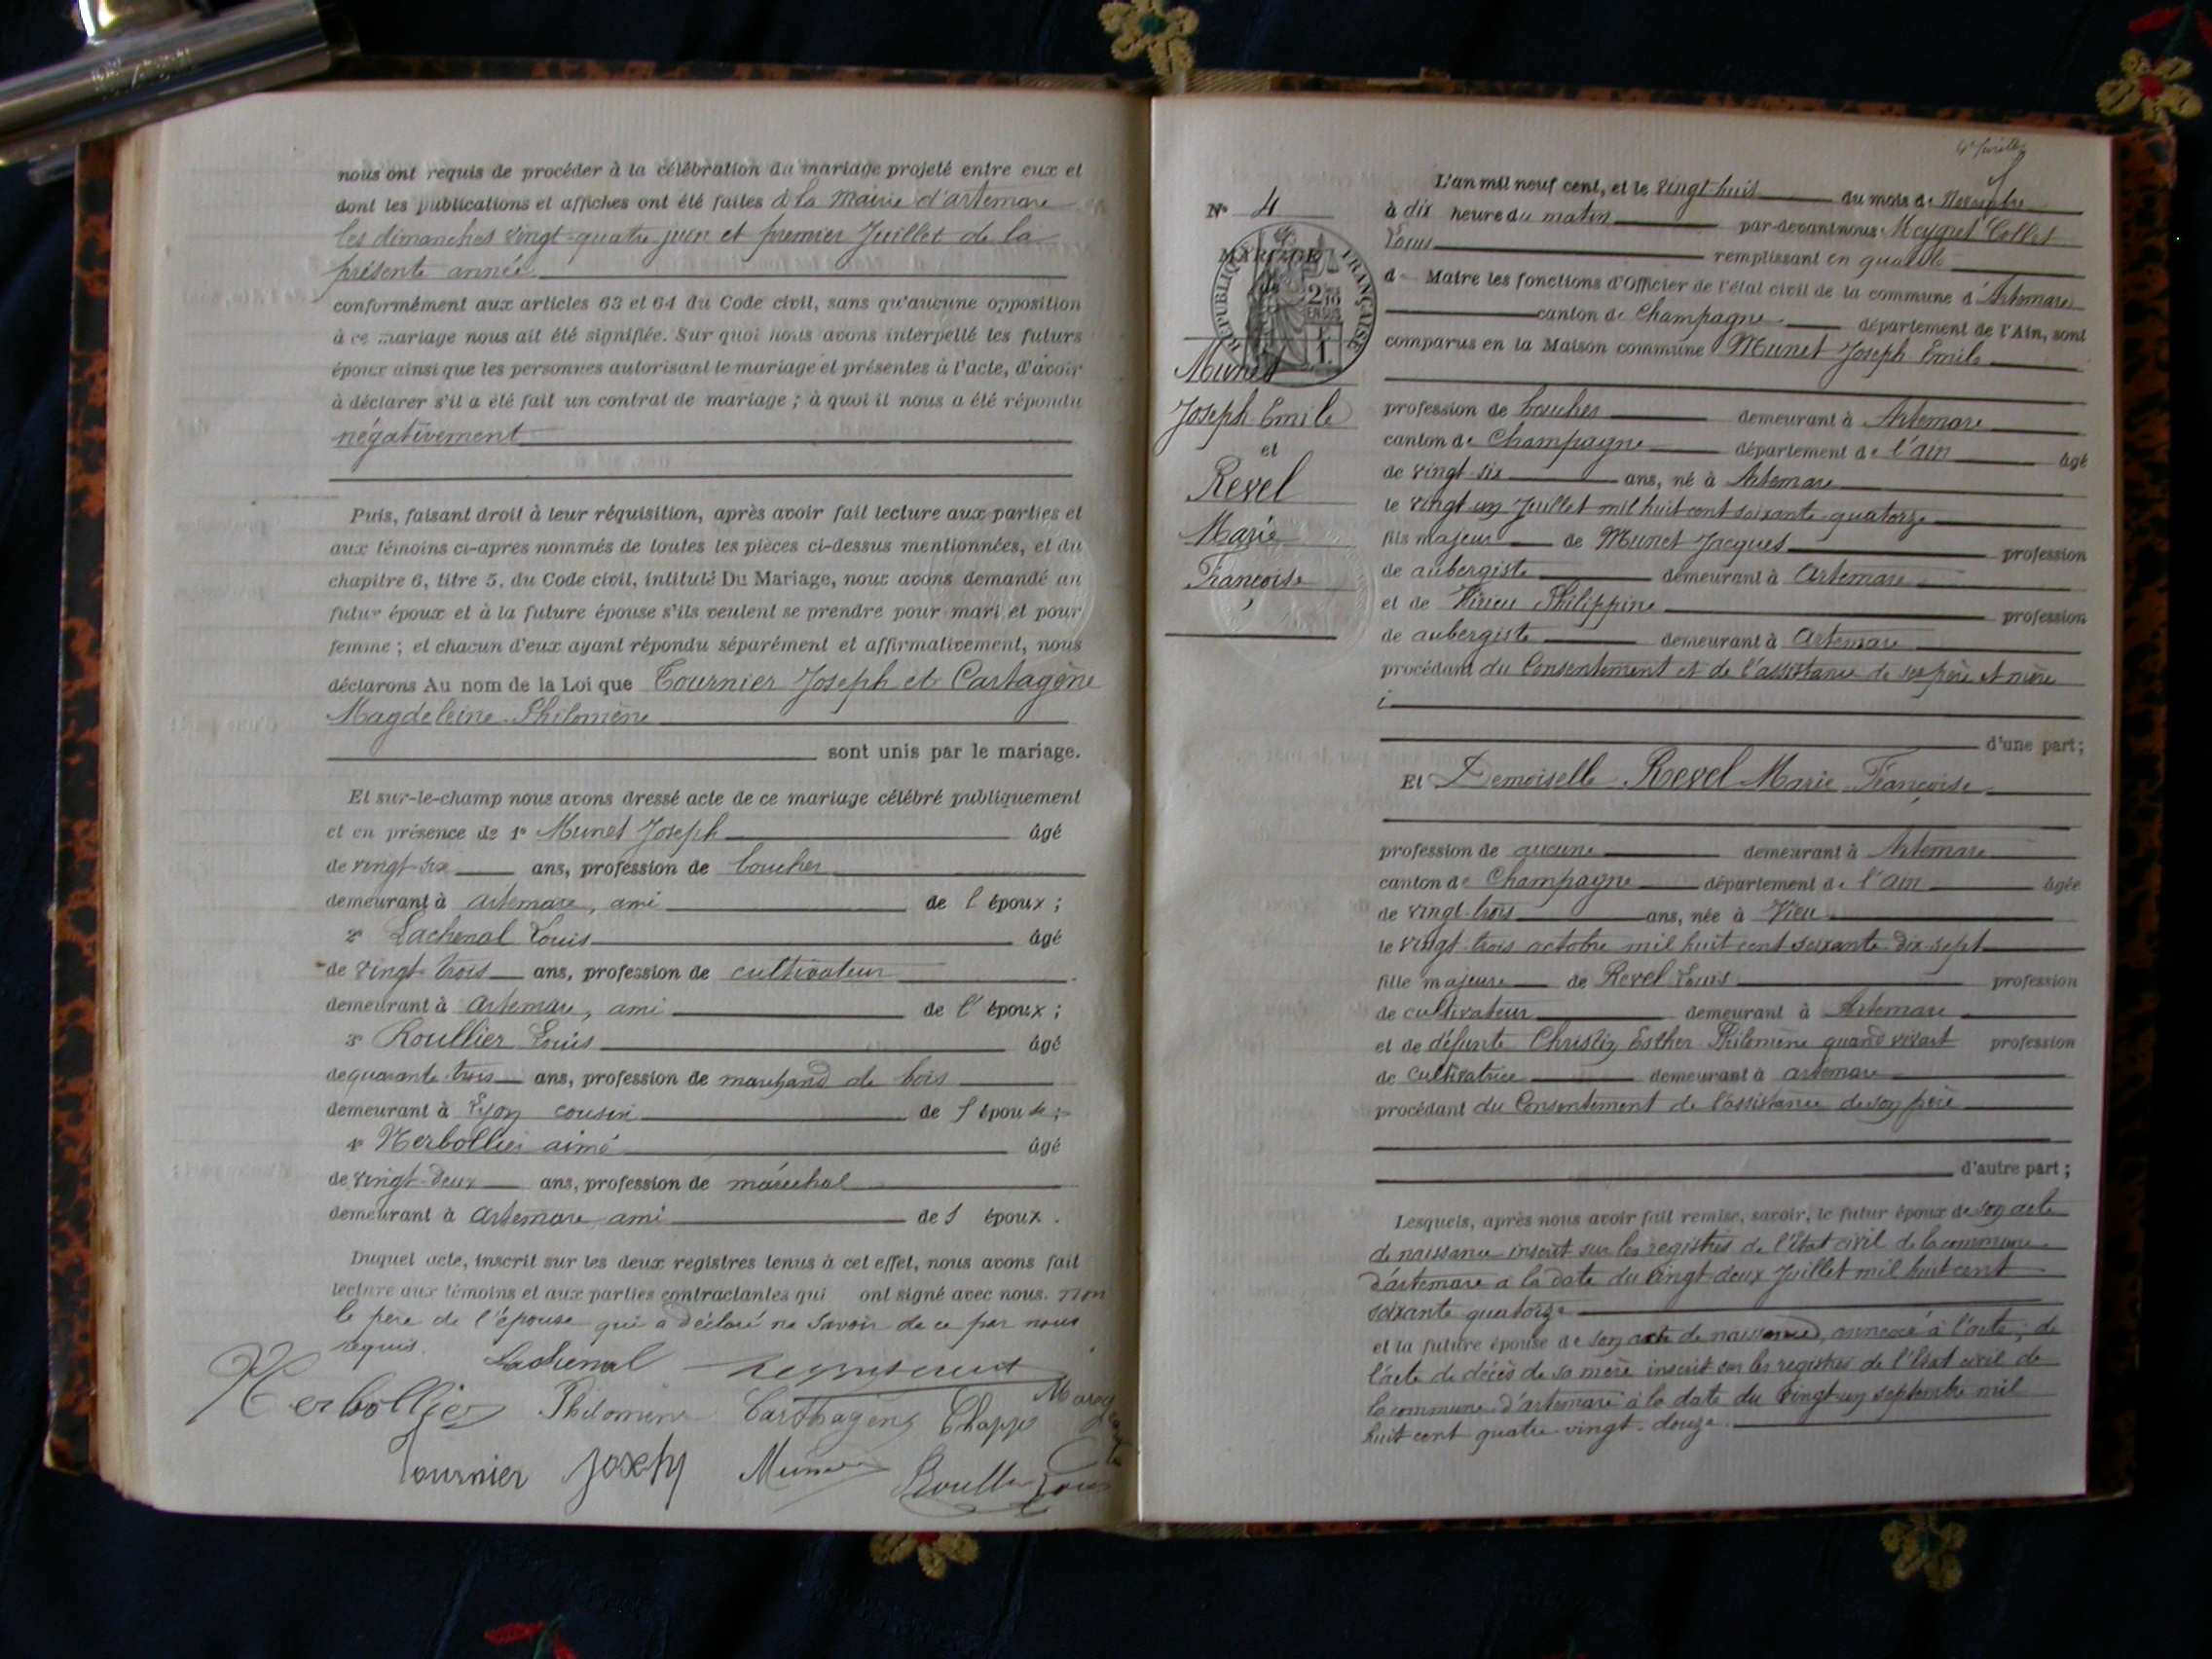 nous ont requis de procéder à la célébration du mariage projeté entre eux et
dont les publications et affiches ont été faites à la Mairie d'artemare
les dimanches vingt-quatre juin et premier Juillet de la
présente année
conformément aux articles 63 et 64 du Code civil, sans qu'aucune opposition
à ce mariage nous ait été signifiée. Sur quoi nous avons interpellé les futurs
époux ainsi que les personnes autorisant le mariage et présentes à l'acte, d'avoir
à déclarer s'il a été fait un contrat de mariage ; à quoi il nous a été répondu
négativement
Puis, faisant droit à leur réquisition, après avoir fait lecture aux parties et
aux témoins ci-après nommés de toutes les pièces ci-dessus mentionnées, et du
chapitre 6, titre 5, du Code civil, intitulé Du Mariage, nous avons demandé au
futur époux et à la future épouse s'ils veulent se prendre pour mari et pour
femme ; et chacun d'eux ayant répondu séparément et affirmativement, nous
déclarons Au nom de la Loi que Tournier Joseph et Cartagène
Magdeleine Philomène
sont unis par le mariage.
Et sur-le-champ nous avons dressé acte de ce mariage célébré publiquement
et en présence de 1° Munet Joseph âgé
de vingt-six ans, profession de boucher
demeurant à artemare, ami de l'époux ;
2° Lachenal Louis âgé
de vingt-trois ans, profession de cultivateur
demeurant à artemare, ami de l'époux ;
3° Roullier Louis âgé
de quarante-trois ans, profession de marchand de bois
demeurant à Lyon cousin de l'épouse ;
4° Herbollier aimé âgé
de vingt-deux ans, profession de maréchal
demeurant à artemare, ami de l'époux.
Duquel acte, inscrit sur les deux registres tenus à cet effet, nous avons fait
lecture aux témoins et aux parties contractantes qui ont signé avec nous. non
le père de l'épouse qui a déclaré ne savoir de ce par nous
requis.
Lachenal
Herbollier Philomène Carthagène Chappe
Tournier Joseph Munet Roullier Louis
N° 4
MARIAGE
de
RÉPUBLIQUE FRANÇAISE
Munet
Joseph-Emile
et
Revel
Marie
Françoise
L'an mil neuf cent, et le vingt-huit du mois de Novembre
à dix heure du matin par-devant nous Meygret Collet
Louis remplissant en qualité
d Maire les fonctions d'Officier de l'état civil de la commune d'Artemare
canton de Champagne département de l'Ain, sont
comparus en la Maison commune Munet Joseph Emile
profession de boucher demeurant à Artemare
canton de Champagne département de l'ain âgé
de vingt-six ans, né à Artemare
le vingt-un Juillet mil huit cent soixante-quatorze
fils majeur de Munet Jacques profession
de aubergiste demeurant à Artemare
et de Virieu Philippine profession
de aubergiste demeurant à Artemare
procédant du Consentement et de l'assistance de ses père et mère
d'une part ;
Et Demoiselle Revel Marie Françoise
profession de aucune demeurant à Artemare
canton de Champagne département de l'ain âgée
de vingt-trois ans, née à Vieu
le vingt-trois octobre mil huit cent soixante dix-sept
fille majeure de Revel Louis profession
de cultivateur demeurant à Artemare
et de défunte Christin Esther Philomène quand vivait profession
de cultivatrice demeurant à artemare
procédant du Consentement de l'assistance de son père
d'autre part ;
Lesquels, après nous avoir fait remise, savoir, le futur époux de son acte
de naissance inscrit sur les registres de l'Etat civil de la commune
d'artemare à la date du vingt-deux Juillet mil huit cent
soixante quatorze
et la future épouse de son acte de naissance, annexé à l'acte ; de
l'acte de décès de sa mère inscrit sur les registres de l'Etat civil de
la commune d'artemare à la date du vingt-un septembre mil
huit cent quatre-vingt-douze.